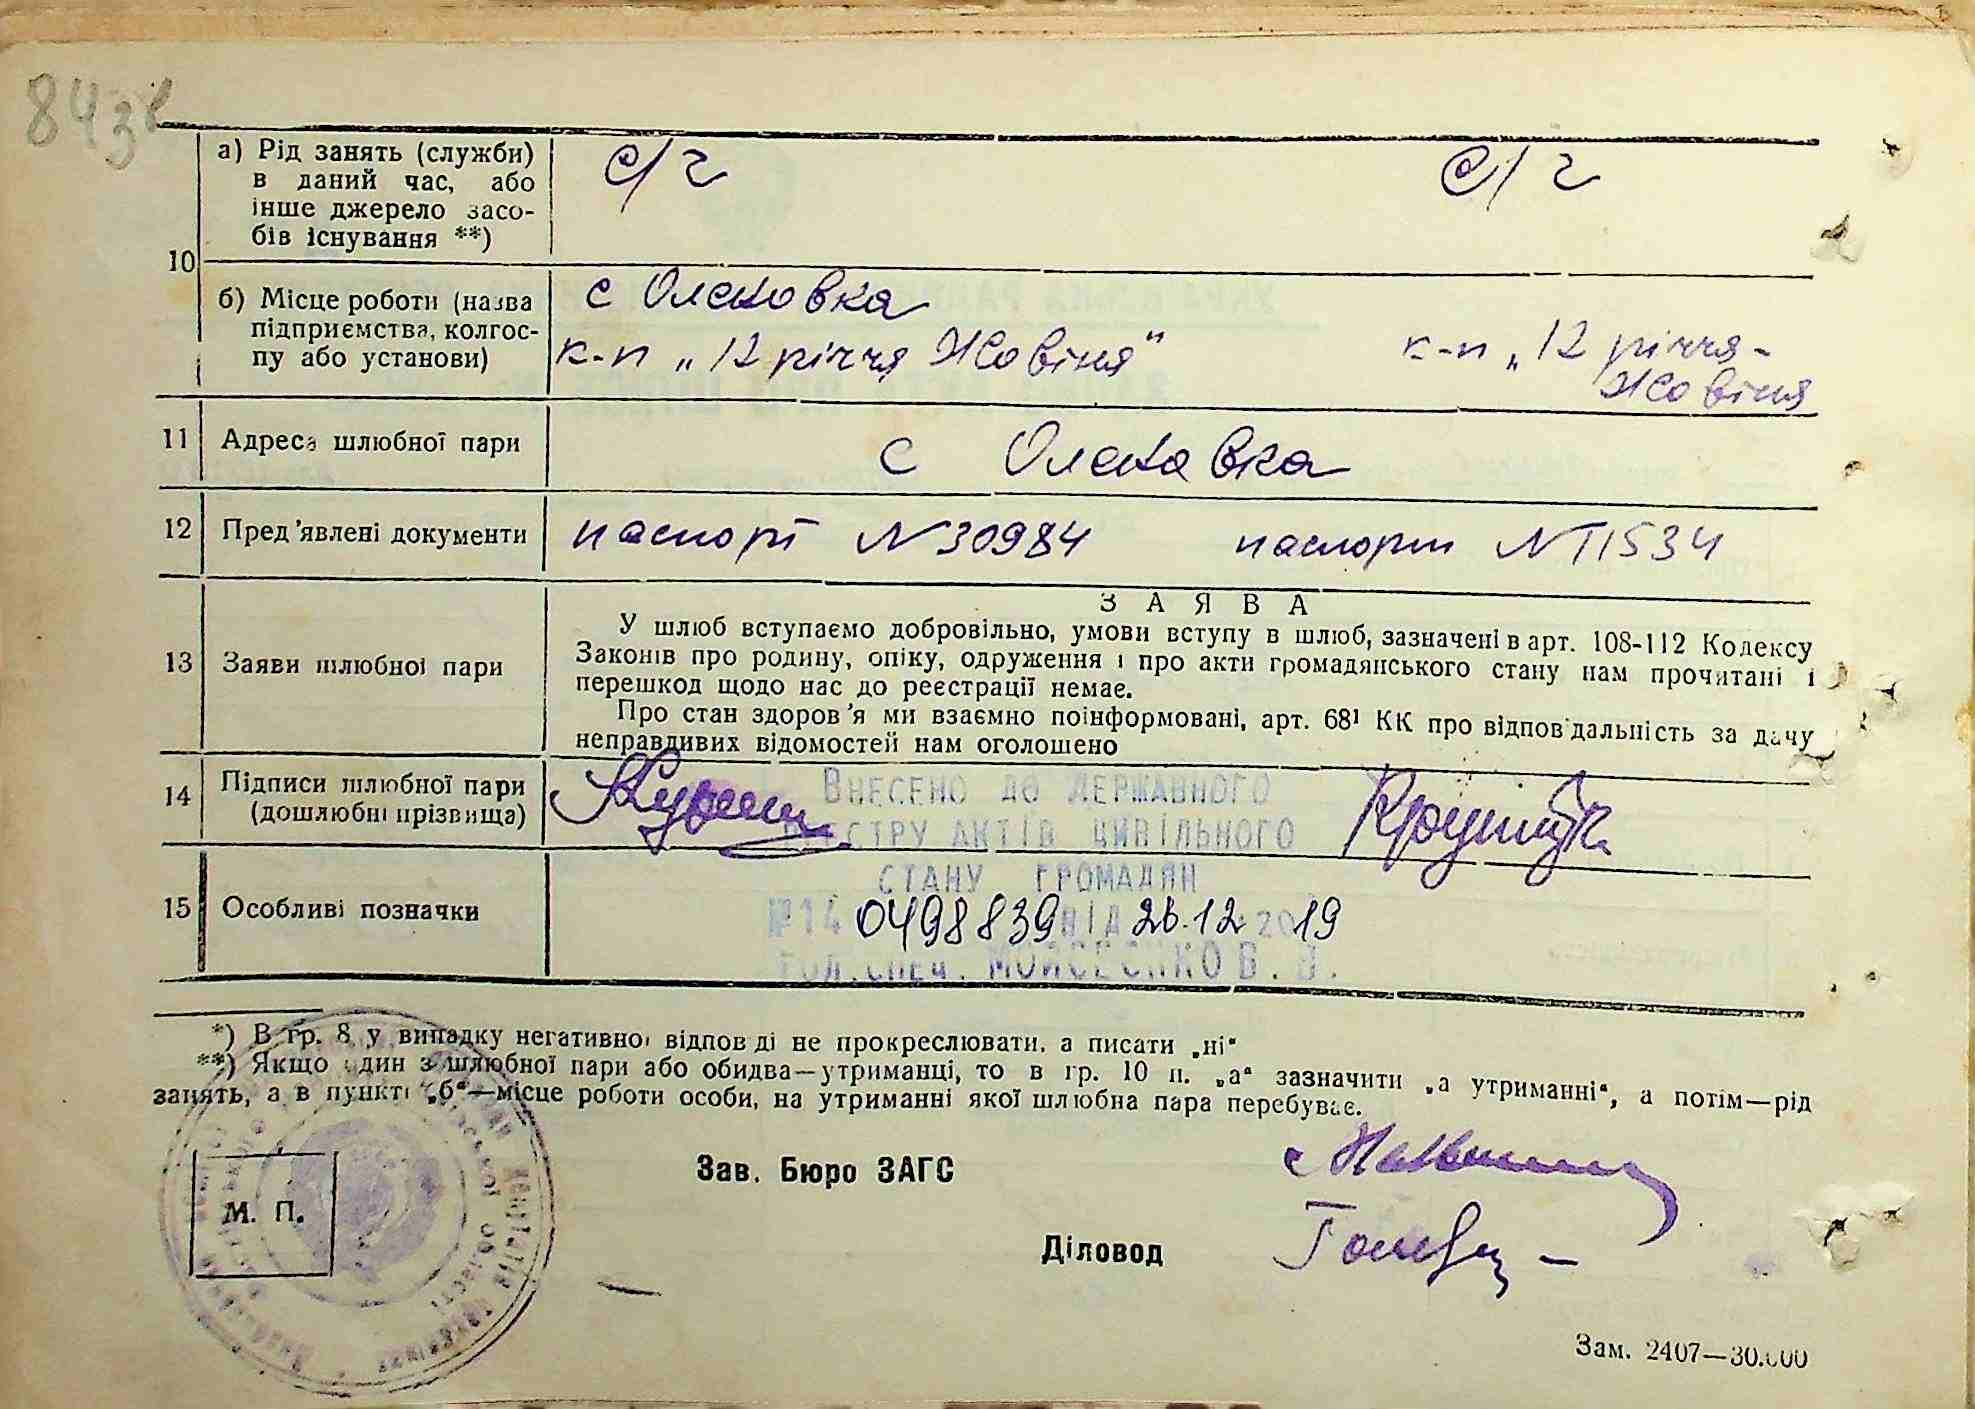 843
а) Рід занять (служби)
в даний час, або
інше джерело засо-
бів існування **)
с/г
с/г
10
б) Місце роботи (назва
підприємства, колгос-
пу або установи)
с
к-п „12 річчя Жовтня"
к-п „12 річчя-
Жовтня
11 Адреса шлюбної пари
с
12 Пред'явлені документи паспорт N30984 паспорт
ЗАЯВА
13 Заяви шлюбної пари
У шлюб вступаємо добровільно, умови вступу в шлюб, зазначені в арт. 108-112 Кодексу
Законів про родину, опіку, одруження і про акти громадянського стану нам прочитані і
перешкод щодо нас до реєстрації немає.
Про стан здоров'я ми взаємно поінформовані, арт. 68¹ КК про відповідальність за дачу
неправдивих відомостей нам оголошено
14 Підписи шлюбної пари
(дошлюбні прізвища)
Внесено до Державного
реєстру актів цивільного
стану громадян
№14 0498839 від 26.12 2019
Гол. спец. Мойсеєнко В. В.
15 Особливі позначки
*) В гр. 8 у випадку негативної відповіді не прокреслювати, а писати „ні"
**) Якщо один з шлюбної пари або обидва—утриманці, то в гр. 10 п. „а" зазначити „а утриманні", а потім—рід
занять, а в пункті „б"—місце роботи особи, на утриманні якої шлюбна пара перебуває.
Зав. Бюро ЗАГС
М. П.
Діловод
Зам. 2407—30.000